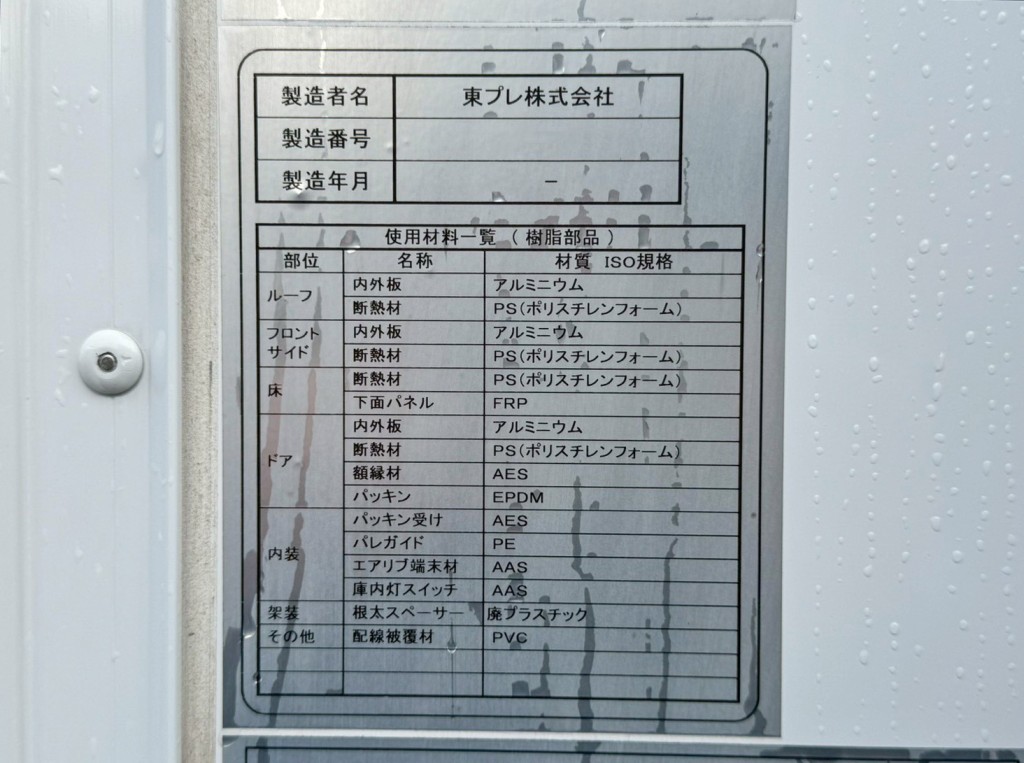 製造者名 東プレ株式会社
製造番号
製造年月 －
使用材料一覧 （ 樹脂部品 ）
部位 名称 材質 ISO規格
ルーフ 内外板 アルミニウム
断熱材 PS(ポリスチレンフォーム)
フロント サイド 内外板 アルミニウム
断熱材 PS(ポリスチレンフォーム)
床 断熱材 PS(ポリスチレンフォーム)
下面パネル FRP
ドア 内外板 アルミニウム
断熱材 PS(ポリスチレンフォーム)
額縁材 AES
パッキン EPDM
内装 パッキン受け AES
パレガイド PE
エアリブ端末材 AAS
庫内灯スイッチ AAS
架装 根太スペーサー 廃プラスチック
その他 配線被覆材 PVC